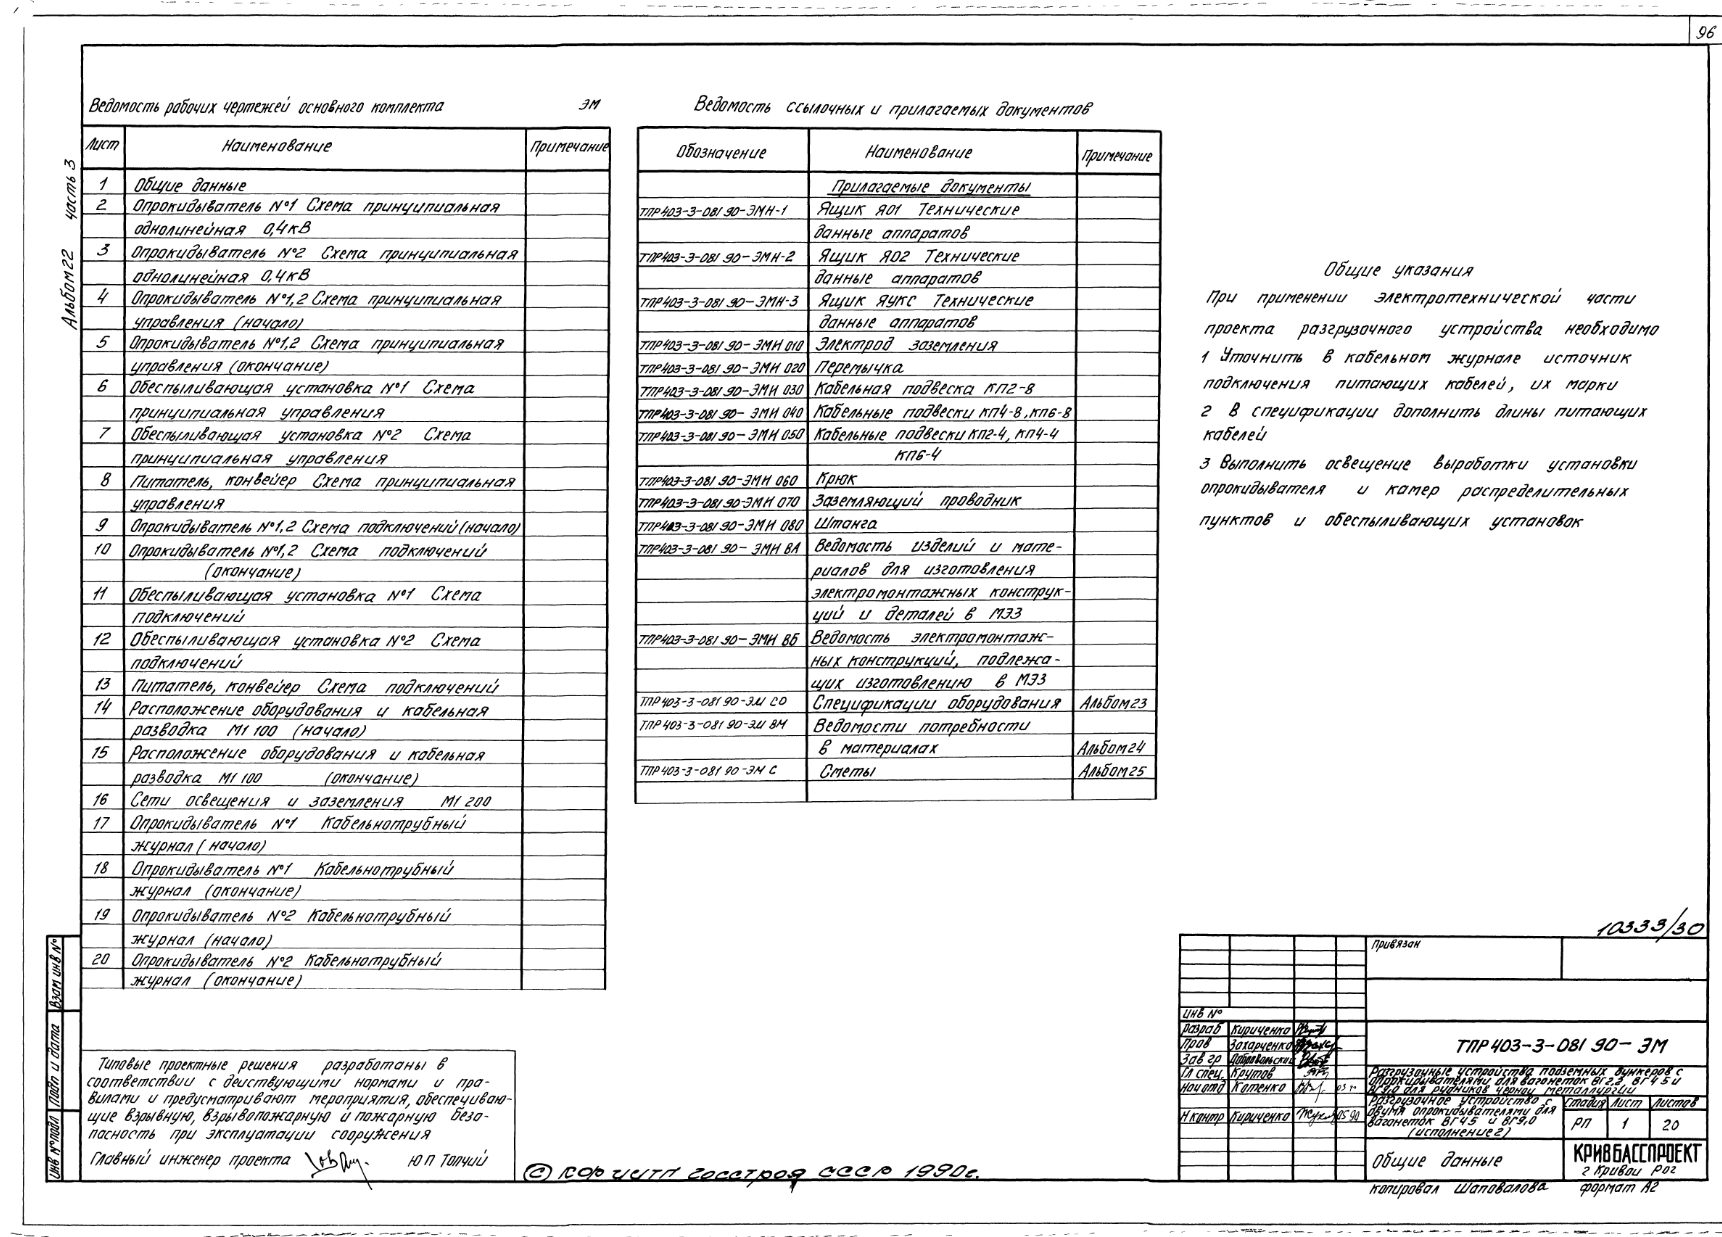 96
Альбом 22 часть 3
Ведомость рабочих чертежей основного комплекта ЭМ
Лист Наименование Примечание
1 Общие данные
2 Опрокидыватель №1 Схема принципиальная
однолинейная 0,4кВ
3 Опрокидыватель №2 Схема принципиальная
однолинейная 0,4кВ
4 Опрокидыватель №1,2 Схема принципиальная
управления (начало)
5 Опрокидыватель №1,2 Схема принципиальная
управления (окончание)
6 Обеспыливающая установка №1 Схема
принципиальная управления
7 Обеспыливающая установка №2 Схема
принципиальная управления
8 Питатель, конвейер Схема принципиальная
управления
9 Опрокидыватель №1,2 Схема подключений (начало)
10 Опрокидыватель №1,2 Схема подключений
(окончание)
11 Обеспыливающая установка №1 Схема
подключений
12 Обеспыливающая установка №2 Схема
подключений
13 Питатель, конвейер Схема подключений
14 Расположение оборудования и кабельная
разводка М1 100 (начало)
15 Расположение оборудования и кабельная
разводка М1 100 (окончание)
16 Сети освещения и заземления М1 200
17 Опрокидыватель №1 Кабельнотрубный
журнал (начало)
18 Опрокидыватель №1 Кабельнотрубный
журнал (окончание)
19 Опрокидыватель №2 Кабельнотрубный
журнал (начало)
20 Опрокидыватель №2 Кабельнотрубный
журнал (окончание)
Ведомость ссылочных и прилагаемых документов
Обозначение Наименование Примечание
Прилагаемые документы
ТПР403-3-081 90-ЭМИ-1 Ящик Я01 Технические
данные аппаратов
ТПР403-3-081 90-ЭМИ-2 Ящик Я02 Технические
данные аппаратов
ТПР403-3-081 90-ЭМИ-3 Ящик ЯУКС Технические
данные аппаратов
ТПР403-3-081 90-ЭМИ 010 Электрод заземления
ТПР403-3-081 90-ЭМИ 020 Перемычка
ТПР403-3-081 90-ЭМИ 030 Кабельная подвеска КП2-8
ТПР403-3-081 90-ЭМИ 040 Кабельные подвески КП4-8, КП6-8
ТПР403-3-081 90-ЭМИ 050 Кабельные подвески КП2-4, КП4-4
КП6-4
ТПР403-3-081 90-ЭМИ 060 Крюк
ТПР403-3-081 90-ЭМИ 070 Заземляющий проводник
ТПР403-3-081 90-ЭМИ 080 Штанга
ТПР403-3-081 90-ЭМИ ВА Ведомость изделий и мате-
риалов для изготовления
электромонтажных конструк-
ций и деталей в МЭЗ
ТПР403-3-081 90-ЭМИ ВБ Ведомость электромонтаж-
ных конструкций, подлежа-
щих изготовлению в МЭЗ
ТПР403-3-081 90-ЭМ СО Спецификации оборудования Альбом23
ТПР403-3-081 90-ЭМ ВМ Ведомости потребности
в материалах Альбом24
ТПР403-3-081 90-ЭМ С Сметы Альбом25
Общие указания
При применении электротехнической части
проекта разгрузочного устройства необходимо
1 Уточнить в кабельном журнале источник
подключения питающих кабелей, их марки
2 В спецификации дополнить длины питающих
кабелей
3 Выполнить освещение выработки установки
опрокидывателя и камер распределительных
пунктов и обеспыливающих установок
Типовые проектные решения разработаны в
соответствии с действующими нормами и пра-
вилами и предусматривают мероприятия, обеспечиваю-
щие взрывную, взрывопожарную и пожарную безо-
пасность при эксплуатации сооружения
Главный инженер проекта Ю П Топчий
© КФ ЦИТП Госстроя СССР 1990г.
Взам инв №
Подп и дата
Инв № подл
10333/30
Привязан
Инв №
Разраб Кириченко
Пров Захарченко
Зав гр Добровольский
Гл спец. Крутов
Нач отд Катенко
Н контр Кириченко 05 90
ТПР 403-3-081 90-ЭМ
Разгрузочные устройства подземных бункеров с
опрокидывателями для вагонеток ВГ2,2, ВГ4 5 и
ВГ9,0 для рудников черной металлургии
Разгрузочное устройство с
двумя опрокидывателями для
вагонеток ВГ4 5 и ВГ9,0
(исполнение 2)
Стадия Лист Листов
РП 1 20
Общие данные
КРИВБАССПРОЕКТ
г Кривой Рог
копировал Шаповалова формат А2